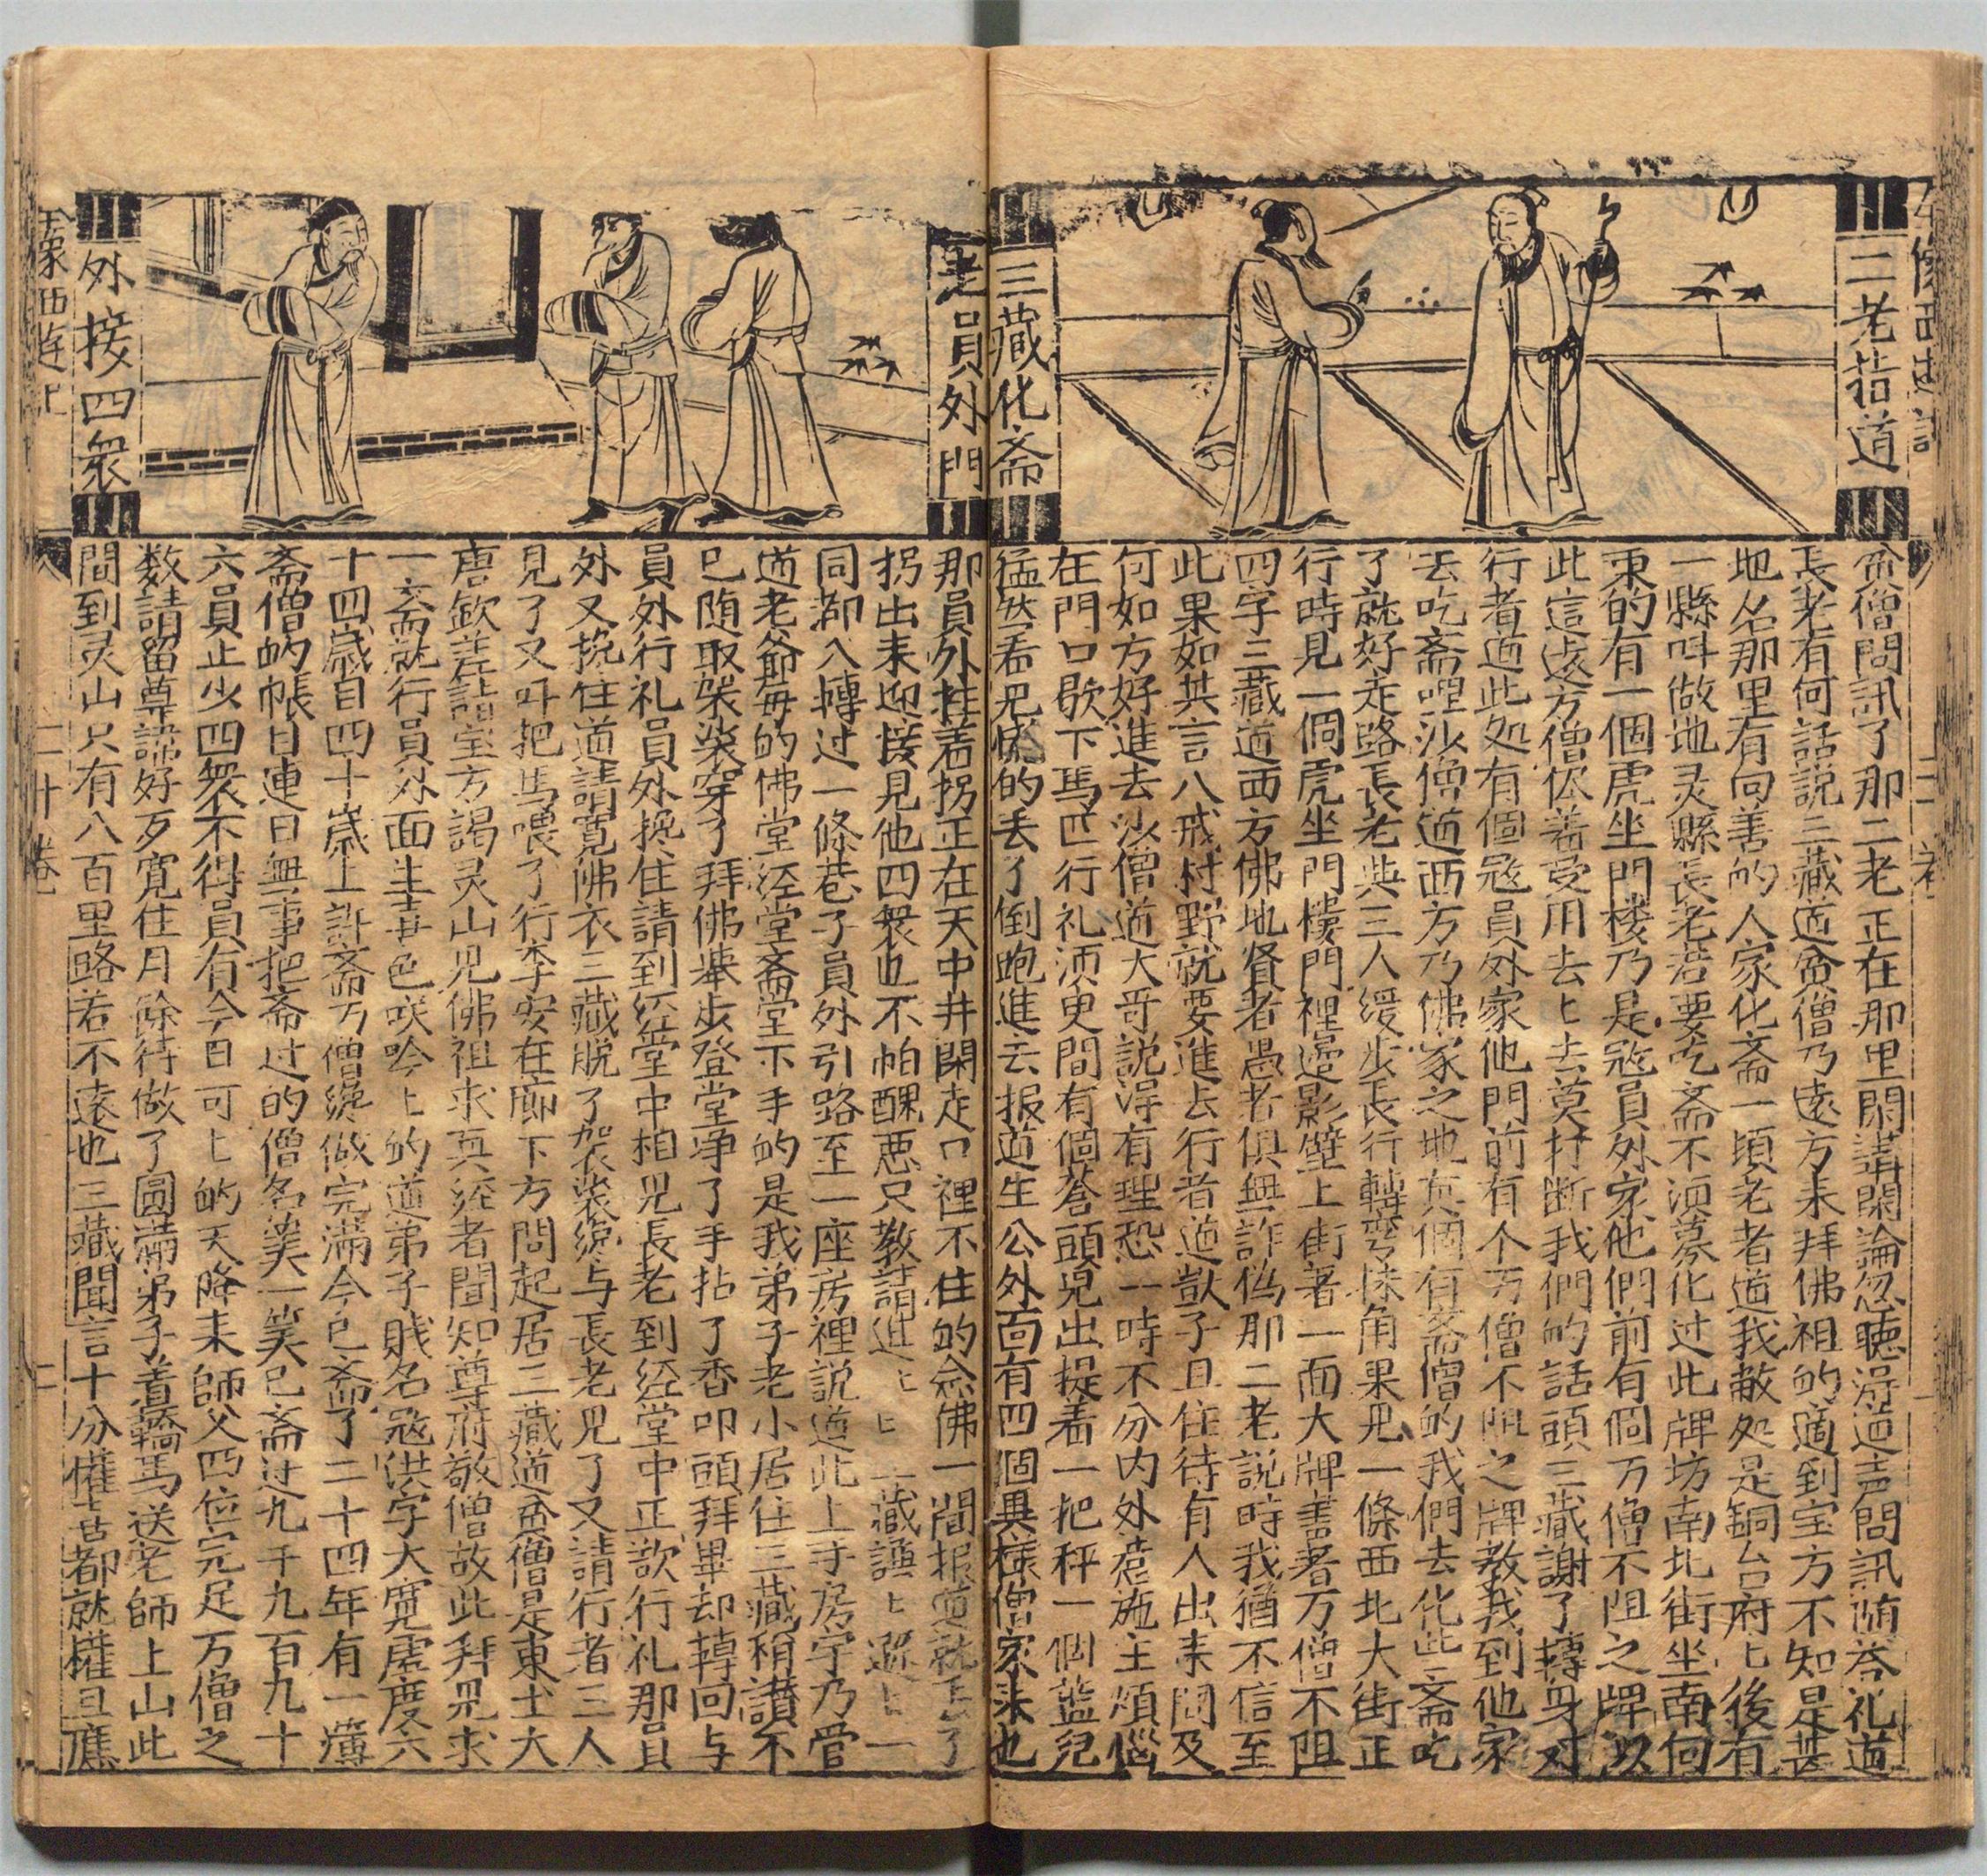 二老指道
三藏化斋
貧僧問訊了那二老正在那里閑講閑論忽聽淂道声問訊随答礼道
長老有何話説三藏道貧僧乃遠方来拜佛祖的適到宝方不知是甚
地名那里有向善的人家化斋一頓老者道我敝処是銅台府匕後有
一縣呌做地灵縣長老若要吃斋不湏募化过此牌坊南北街坐南向
東的有一個虎坐門楼乃是㓂員外家他們前有個万僧不阻之牌以
此這遠方僧侭着受用去匕去莫打断我們的話頭三藏謝了轉身对
行者道此処有個㓂員外家他門前有个万僧不阻之牌教我到他家
去吃斋哩沙僧道西方乃佛家之地真個有斋僧的我們去化些斋吃
了就好走路長老與三人緩步長行轉彎抹角果見一條西北大街正
行時見一個虎坐門樓門裡邉影壁上街著一面大牌書着万僧不阻
四字三藏道西方佛地賢者愚者俱無詐偽那二老説時我猶不信至
此果如其言八戒村野就要進去行者道獃子且住待有人出来問及
何如方好進去沙僧道大哥説淂有理恐一時不分内外惹施主煩惱
在門口歇下馬匹行礼湏臾間有個蒼頭児出提着一把秤一個籃児
猛然看見慌的丢了倒跑進去报道主公外面有四個異様僧家来也
老員外門
外接四衆
那員外拄着拐正在天中井閑走口裡不住的念佛一聞报道就丢了
拐出来迎接見他四衆也不怕醜悪只教請進匕匕三藏謙匕遜匕一
同都入轉过一條巷子員外引路至一座房裡説道此上手房宇乃管
道老爺毎的佛堂经堂斋堂下手的是我弟子老小居住三藏稱讃不
已随取袈裟穿了拜佛舉步登堂净了手拈了香叩頭拜畢却轉回与
員外行礼員外攙住請到经堂中相見長老到经堂中正欲行礼那員
外又挽住道請寛佛衣三藏脱了袈裟纔与長老見了又請行者三人
見了又呌把馬喂了行李安在廊下方問起居三藏道貧僧是東土大
唐欽差詣宝方謁灵山見佛祖求真经者聞知尊府敬僧故此拜見求
一斋就行員外面生喜色咲吟匕的道弟子賎名㓂洪字大寛虚度六
十四歳自四十歳上許斋万僧纔做完滿今已斋了二十四年有一簿
斋僧的帳目連日無事把斋过的僧名筭一筭已斋过九千九百九十
六員止少四衆不得員有今日可匕的天降来師父四位完足万僧之
数請留尊諱好歹寛住月餘待做了圓滿弟子着轎馬送老師上山此
間到灵山只有八百里路若不遠也三藏聞言十分懽喜都就權且應
二十卷